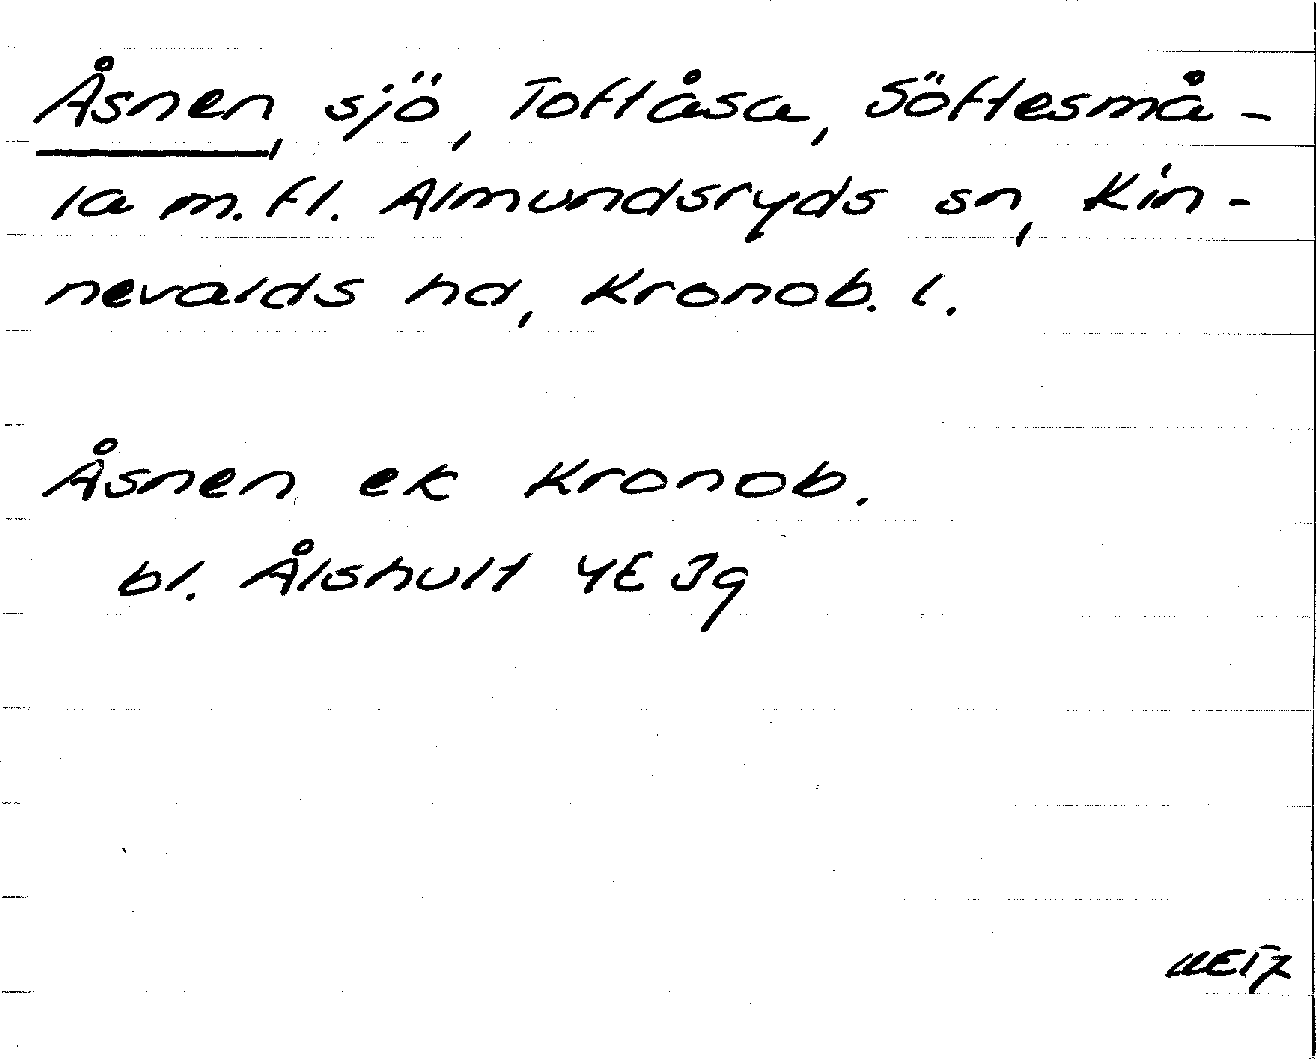 Åsnen, sjö, Toftåsa, Söftesmå-
la m.fl. Almundsryds sn, Kin-
nevalds hd, Kronob. l.
Åsnen ek Kronob.
bl. Ålshult 4E Jg